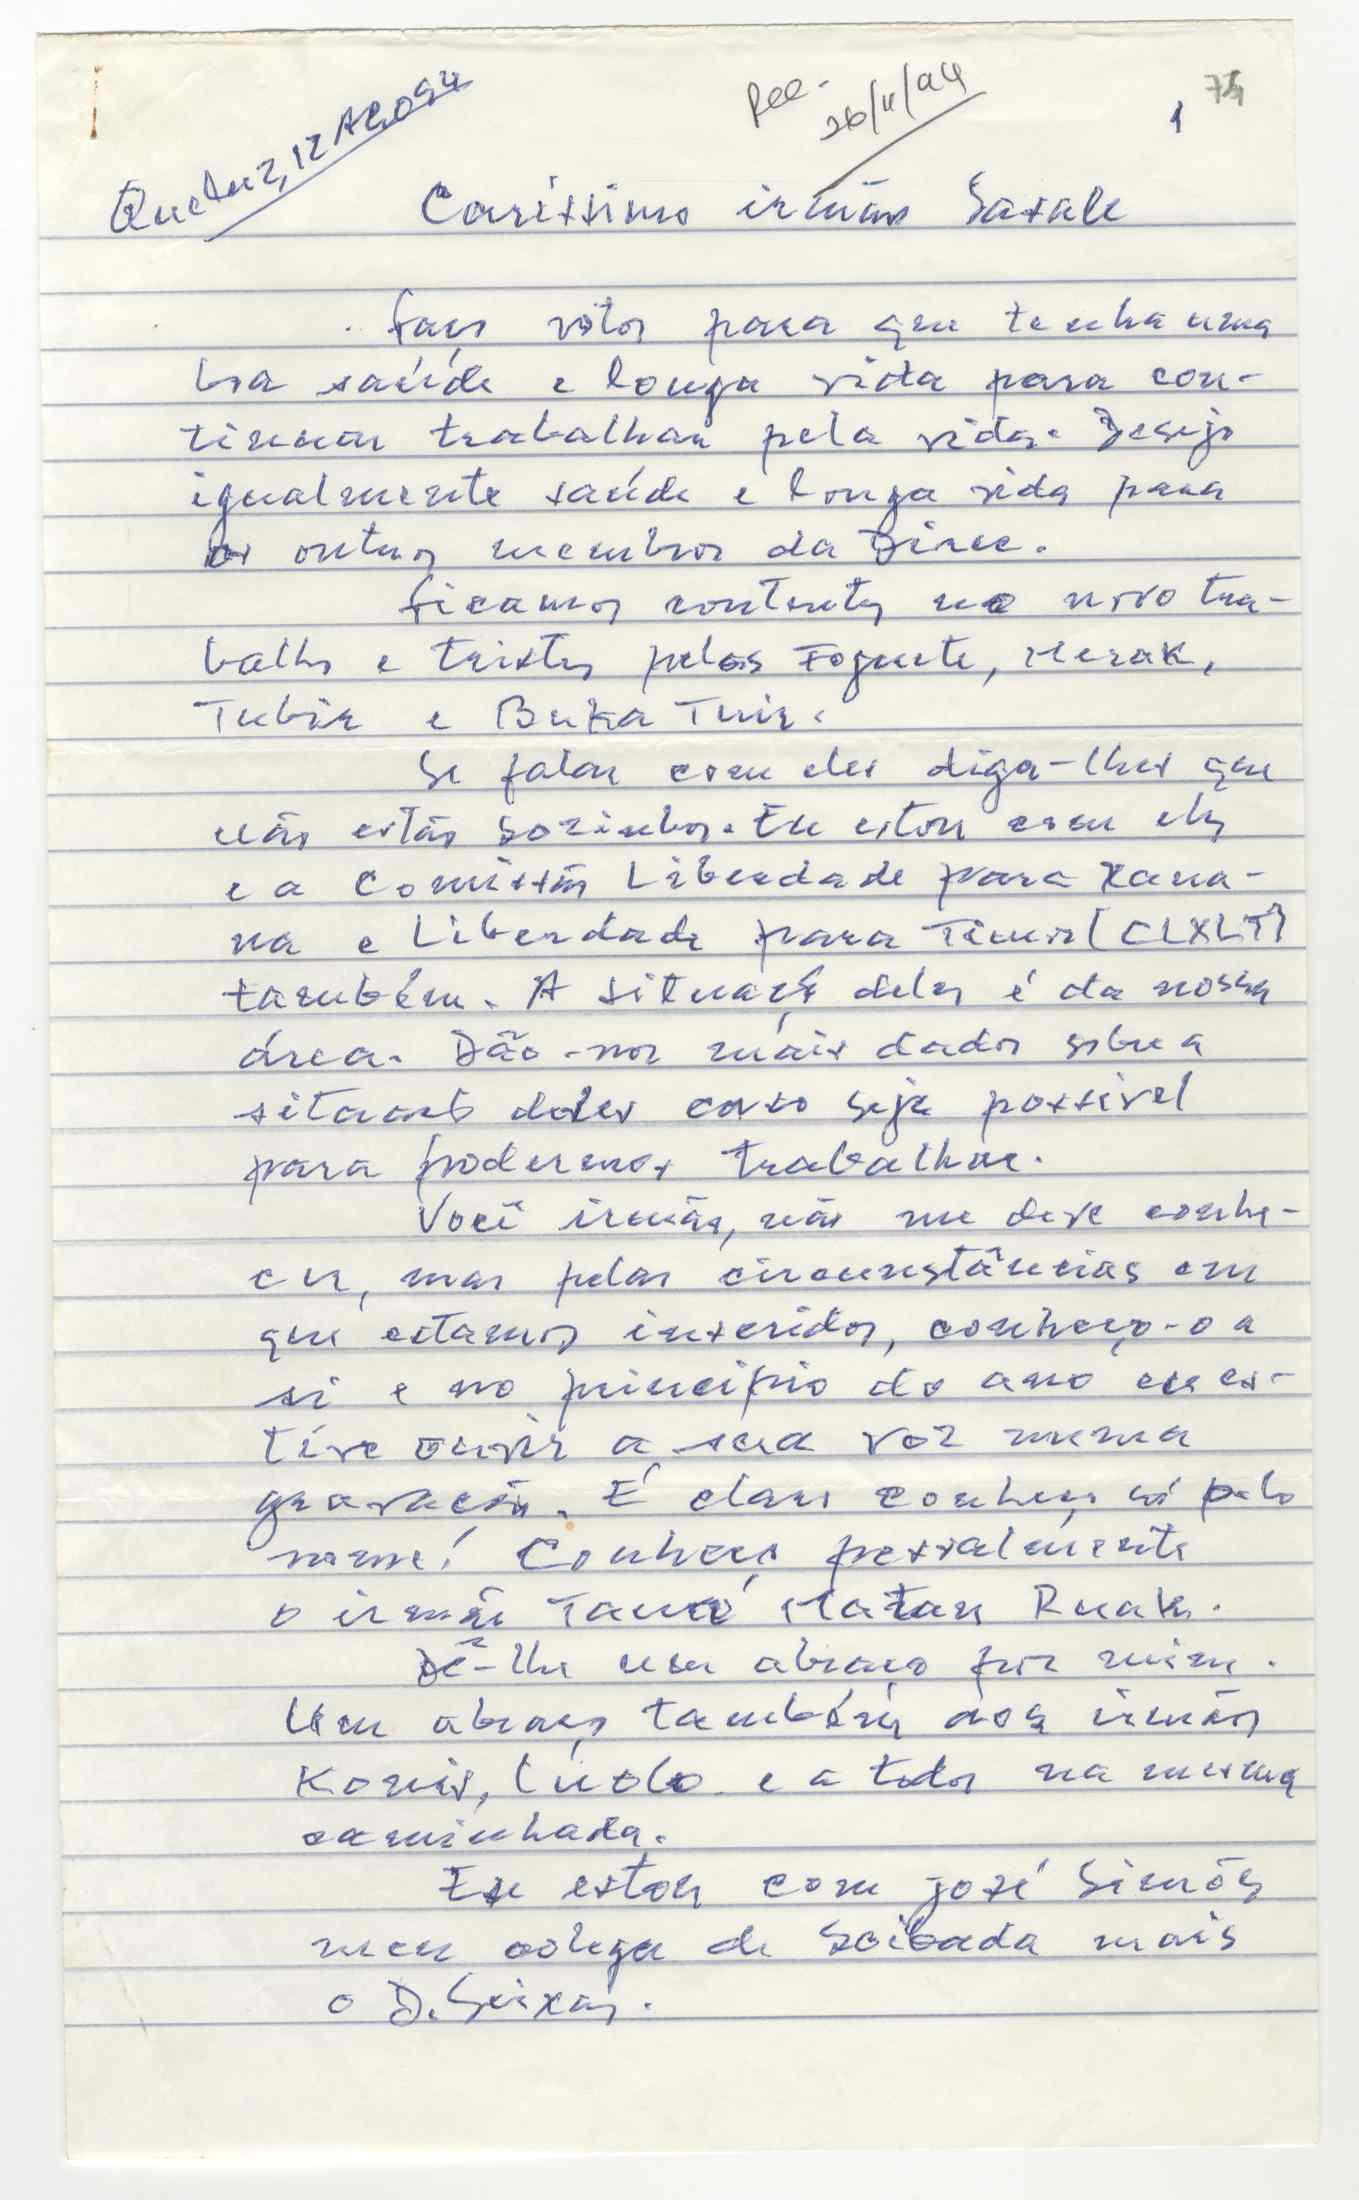 Queluz, 12 AGO 94
Rec.
26/11/94
1
74
Caríssimo irmão Sasale
Faço votos para que tenha uma
boa saúde e longa vida para con-
tinuar trabalhar pela vida. Desejo
igualmente saúde e longa vida para
os outros membros da Direc.
Ficamos contentes no novo tra-
balho e tristes pelos Foguete, Merak,
Tubir e Buka Tuir.
Se falar com eles diga-lhes que
não estão sozinhos. Eu estou com eles
e a Comissão Liberdade para Xana-
na e Liberdade para Timor (CLXLT)
também. A situação deles é da nossa
área. Dão-nos mais dados sobre a
situação deles caso seja possivel
para podermos trabalhar.
Você irmão, não me deve conhe-
cer, mas pelas circunstâncias em
que estamos inseridos, conheço-o a
si e no princípio do ano eu es-
tive ouvir a sua voz numa
gravação. É claro conheço só pelo
nome! Conheço pessoalmente
o irmão Taur Matan Ruak.
Dê-lhe um abraço por mim.
Um abraço também aos irmãos
Konis, Lú-Olo e a todos na mesma
caminhada.
Eu estou com José Simões
meu colega de Soibada mais
o D. Seixas.